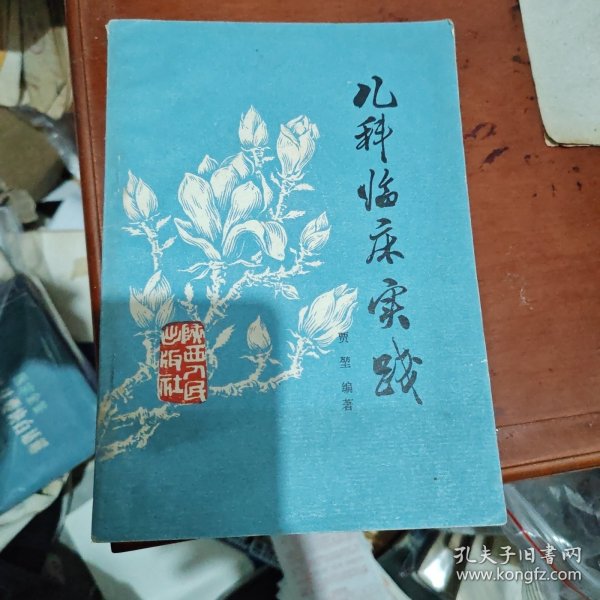 儿科临床实践
贾堃 编著
陕西人民
出版社
孔夫子旧书网
www.kongfz.com